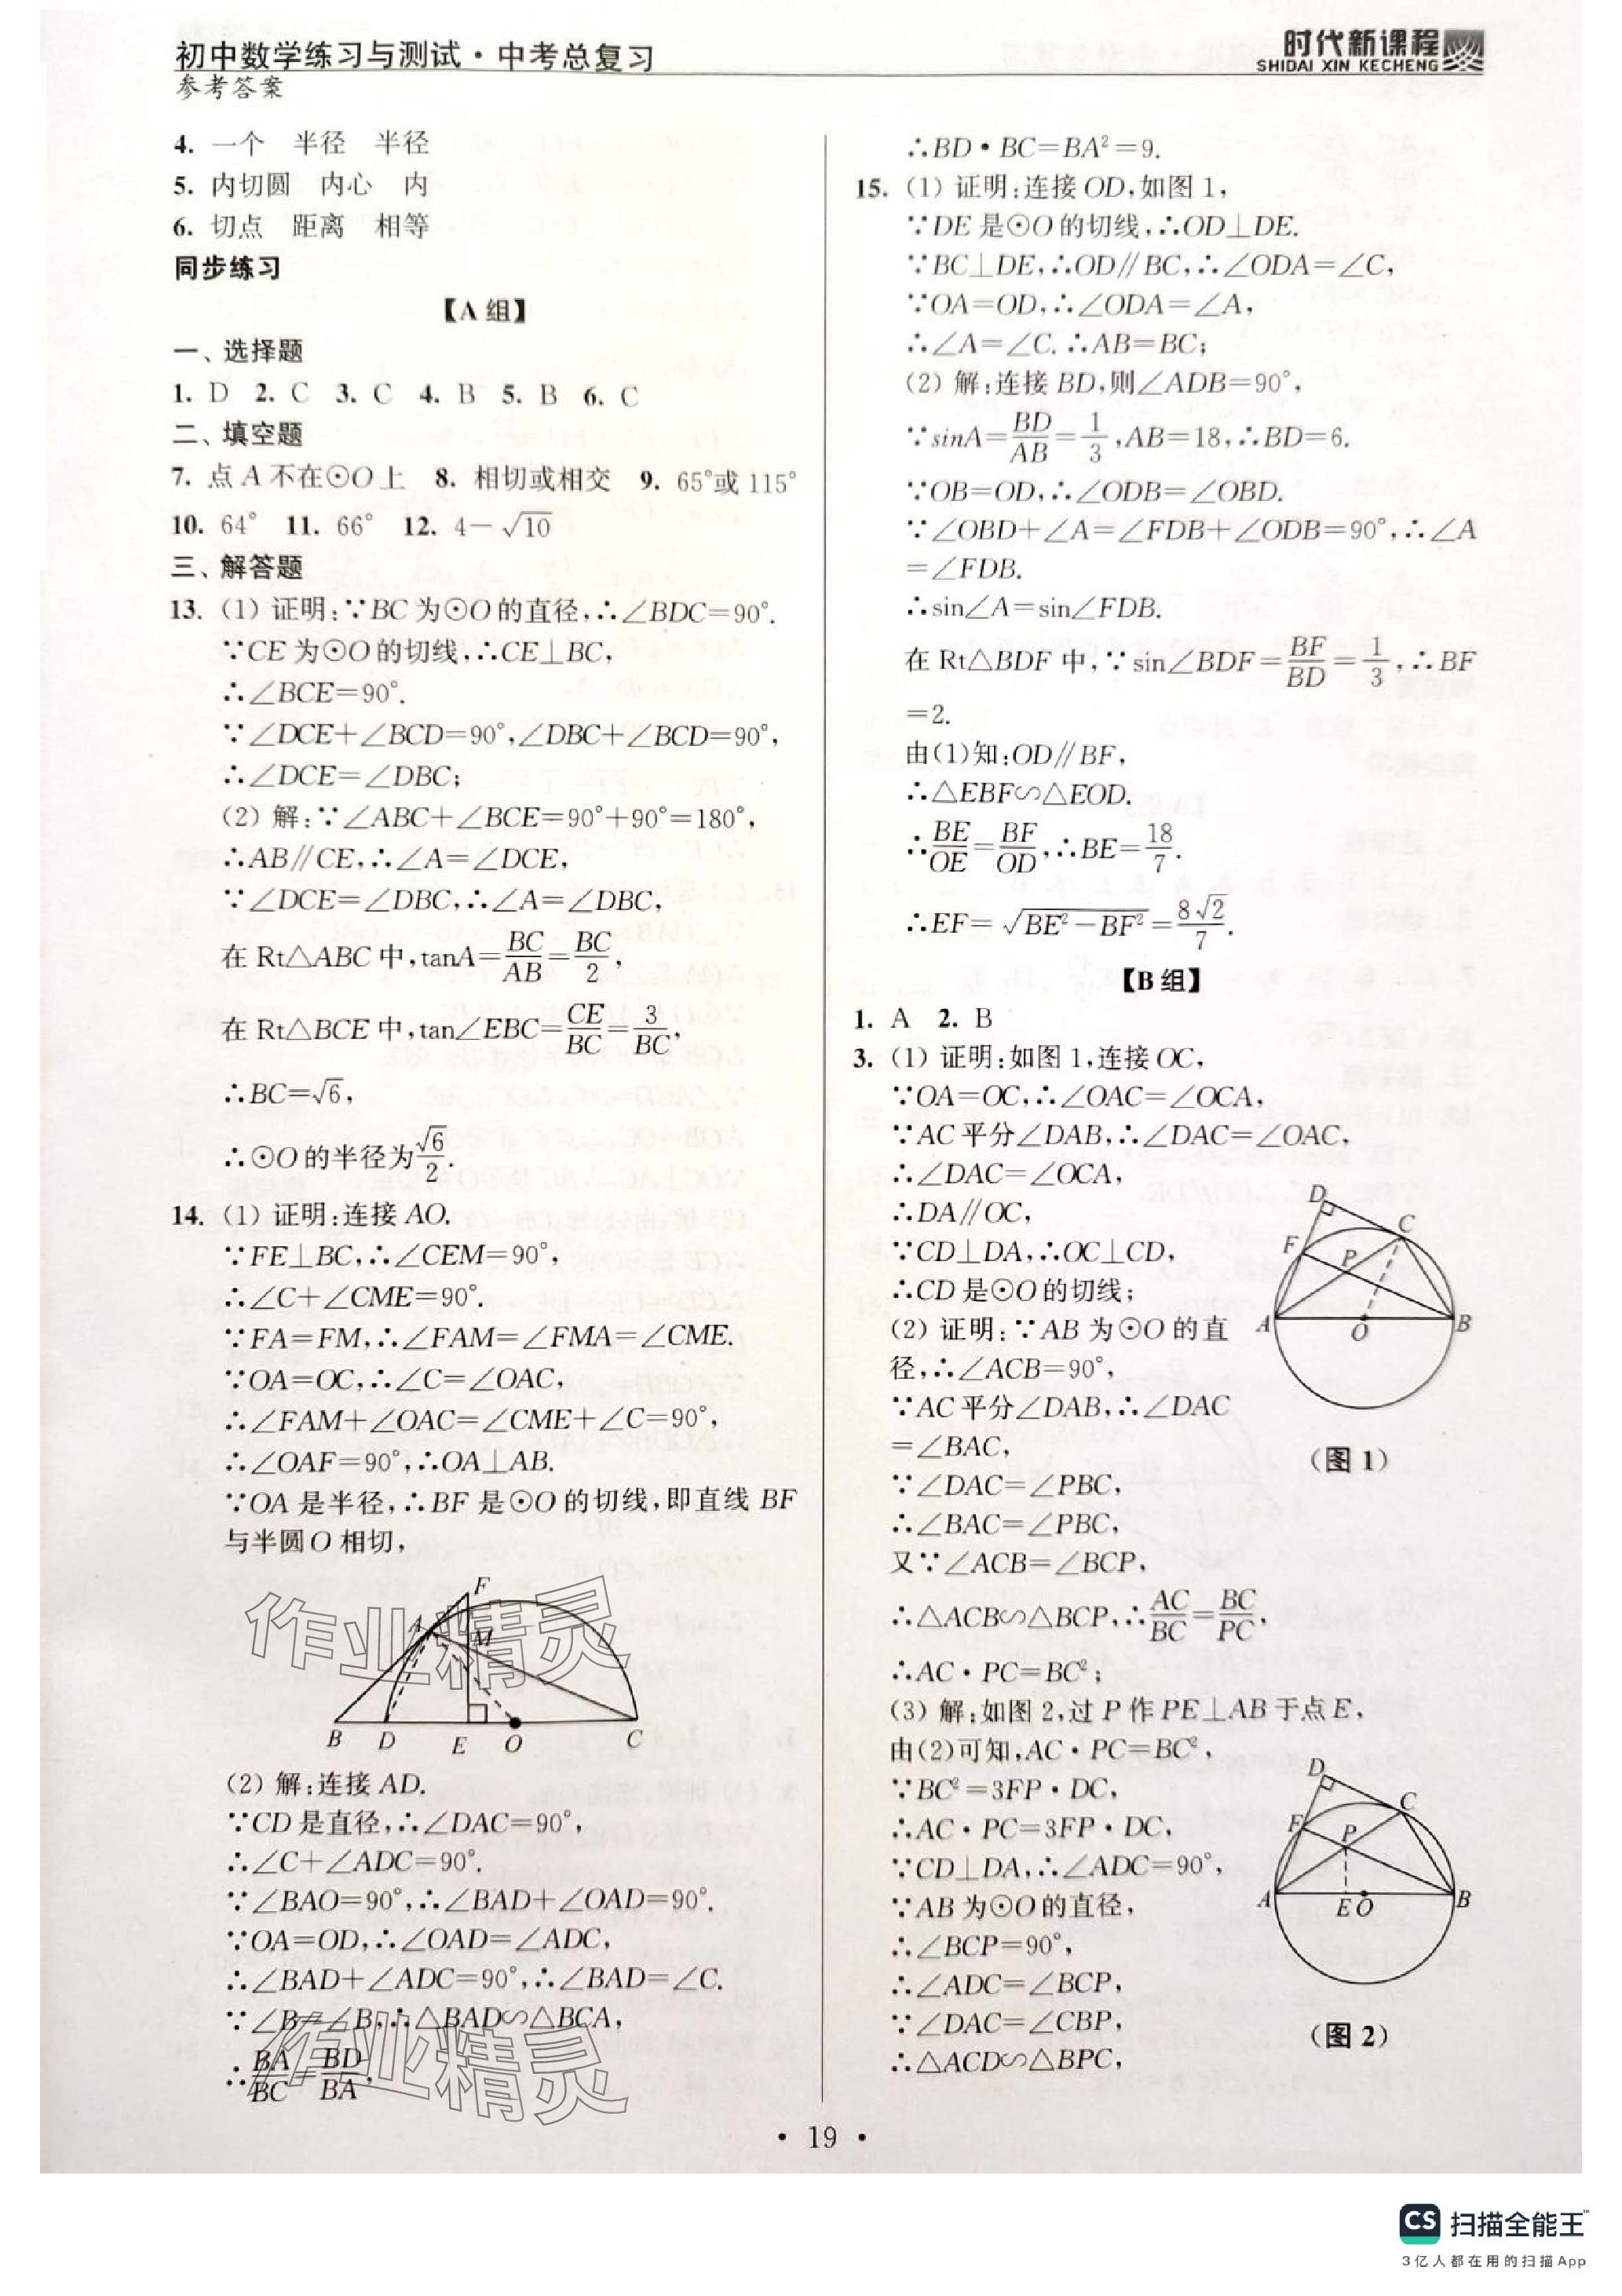 初中数学练习与测试·中考总复习
时代新课程
SHIDAI XIN KECHENG
参考答案
4. 一个 半径 半径
5. 内切圆 内心 内
6. 切点 距离 相等
同步练习
【A 组】
一、选择题
1. D 2. C 3. C 4. B 5. B 6. C
二、填空题
7. 点 A 不在⊙O 上 8. 相切或相交 9. 65°或 115°
10. 64° 11. 66° 12. 4－√10
三、解答题
13. (1) 证明:∵BC 为⊙O 的直径,∴∠BDC=90°.
∵CE 为⊙O 的切线,∴CE⊥BC,
∴∠BCE=90°.
∵∠DCE+∠BCD=90°,∠DBC+∠BCD=90°,
∴∠DCE=∠DBC;
(2) 解:∵∠ABC+∠BCE=90°+90°=180°,
∴AB∥CE,∴∠A=∠DCE,
∵∠DCE=∠DBC,∴∠A=∠DBC,
在 Rt△ABC 中,tanA=BC/AB=BC/2,
在 Rt△BCE 中,tan∠EBC=CE/BC=3/BC,
∴BC=√6,
∴⊙O 的半径为√6/2.
14. (1) 证明:连接 AO.
∵FE⊥BC,∴∠CEM=90°,
∴∠C+∠CME=90°.
∵FA=FM,∴∠FAM=∠FMA=∠CME.
∵OA=OC,∴∠C=∠OAC,
∴∠FAM+∠OAC=∠CME+∠C=90°,
∴∠OAF=90°,∴OA⊥AB.
∵OA 是半径,∴BF 是⊙O 的切线,即直线 BF
与半圆 O 相切,
F
A
M
B D E O C
作业精灵
(2) 解:连接 AD.
∵CD 是直径,∴∠DAC=90°,
∴∠C+∠ADC=90°.
∵∠BAO=90°,∴∠BAD+∠OAD=90°.
∵OA=OD,∴∠OAD=∠ADC,
∴∠BAD+∠ADC=90°,∴∠BAD=∠C.
∵∠B=∠B,∴△BAD∽△BCA,
∴BA/BC=BD/BA,
作业精灵
∴BD·BC=BA²=9.
15. (1) 证明:连接 OD,如图 1,
∵DE 是⊙O 的切线,∴OD⊥DE.
∵BC⊥DE,∴OD∥BC,∴∠ODA=∠C,
∵OA=OD,∴∠ODA=∠A,
∴∠A=∠C. ∴AB=BC;
(2) 解:连接 BD,则∠ADB=90°,
∵sinA=BD/AB=1/3,AB=18,∴BD=6.
∵OB=OD,∴∠ODB=∠OBD.
∵∠OBD+∠A=∠FDB+∠ODB=90°,∴∠A
=∠FDB.
∴sin∠A=sin∠FDB.
在 Rt△BDF 中,∵sin∠BDF=BF/BD=1/3,∴BF
=2.
由(1)知:OD∥BF,
∴△EBF∽△EOD.
∴BE/OE=BF/OD,∴BE=18/7.
∴EF=√(BE²－BF²)=8√2/7.
【B 组】
1. A 2. B
3. (1) 证明:如图 1,连接 OC,
∵OA=OC,∴∠OAC=∠OCA,
∵AC 平分∠DAB,∴∠DAC=∠OAC,
∴∠DAC=∠OCA,
∴DA∥OC,
∵CD⊥DA,∴OC⊥CD,
∴CD 是⊙O 的切线;
(2) 证明:∵AB 为⊙O 的直
径,∴∠ACB=90°,
∵AC 平分∠DAB,∴∠DAC
=∠BAC,
∵∠DAC=∠PBC,
∴∠BAC=∠PBC,
又∵∠ACB=∠BCP,
∴△ACB∽△BCP,∴AC/BC=BC/PC,
∴AC·PC=BC²;
D
C
F
P
A O B
(图 1)
(3) 解:如图 2,过 P 作 PE⊥AB 于点 E,
由(2)可知,AC·PC=BC²,
∵BC²=3FP·DC,
∴AC·PC=3FP·DC,
∵CD⊥DA,∴∠ADC=90°,
∵AB 为⊙O 的直径,
∴∠BCP=90°,
∴∠ADC=∠BCP,
∵∠DAC=∠CBP,
∴△ACD∽△BPC,
D
C
F
P
A E O B
(图 2)
· 19 ·
CS 扫描全能王™
3亿人都在用的扫描App